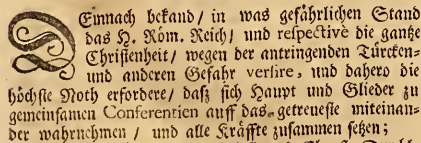 DEmnach bekand / in was gefährlichen Stand
das H. Röm. Reich / und respectivè die gantze
Christenheit / wegen der antringenden Türcken-
und anderen Gefahr versire, und dahero die
höchste Noth erfordere / daß sich Haupt und Glieder zu
gemeinsamen Conferentien auff das getreueste miteinan-
der wahrnehmen / und alle Kräffte zusammen setzen;